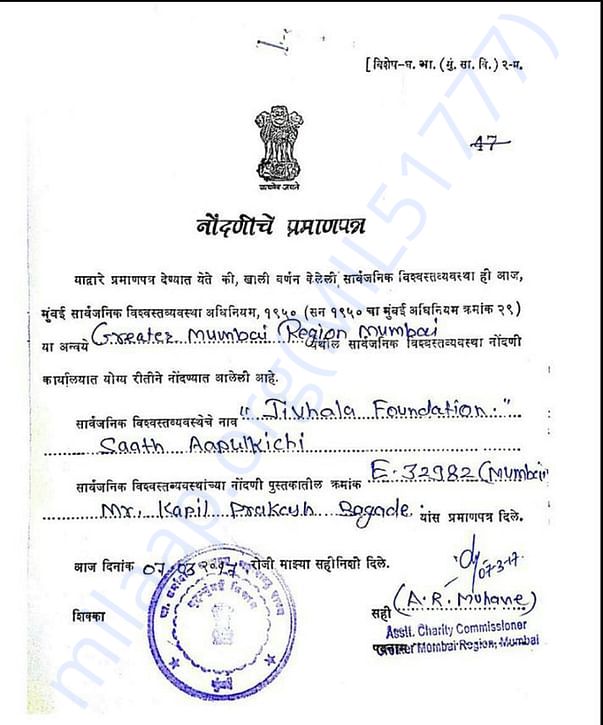 [विशेष-घ. आ. (मुं. सा. वि.) २-म.
47
सत्यमेव जयते
नोंदणीचे प्रमाणपत्र
याद्वारे प्रमाणपत्र देण्यात येते की, खाली वर्णन केलेली सार्वजनिक विश्वस्तव्यवस्था ही आज,
मुंबई सार्वजनिक विश्वस्तव्यवस्था अधिनियम, १९५० (सन १९५० चा मुंबई अधिनियम क्रमांक २९)
या अन्वये Greater Mumbai Region Mumbai येथील सार्वजनिक विश्वस्तव्यवस्था नोंदणी
कार्यालयात योग्य रीतीने नोंदण्यात आलेली आहे.
सार्वजनिक विश्वस्तव्यवस्थेचे नाव "Jivhala Foundation."
Saath Aapulkichi
सार्वजनिक विश्वस्तव्यवस्थांच्या नोंदणी पुस्तकातील क्रमांक E-32982 (Mumbai)
Mr. Kapil Prakash Bagade. यांस प्रमाणपत्र दिले.
आज दिनांक 07.03.२०१७ रोजी माझ्या सहीनिशी दिले.
07-3-17
शिक्का
सही (A. R. Muhane)
Asstt. Charity Commissioner
Greater Mombai Region, Mumbai
मुंबई
milaap.org(MIL51777)